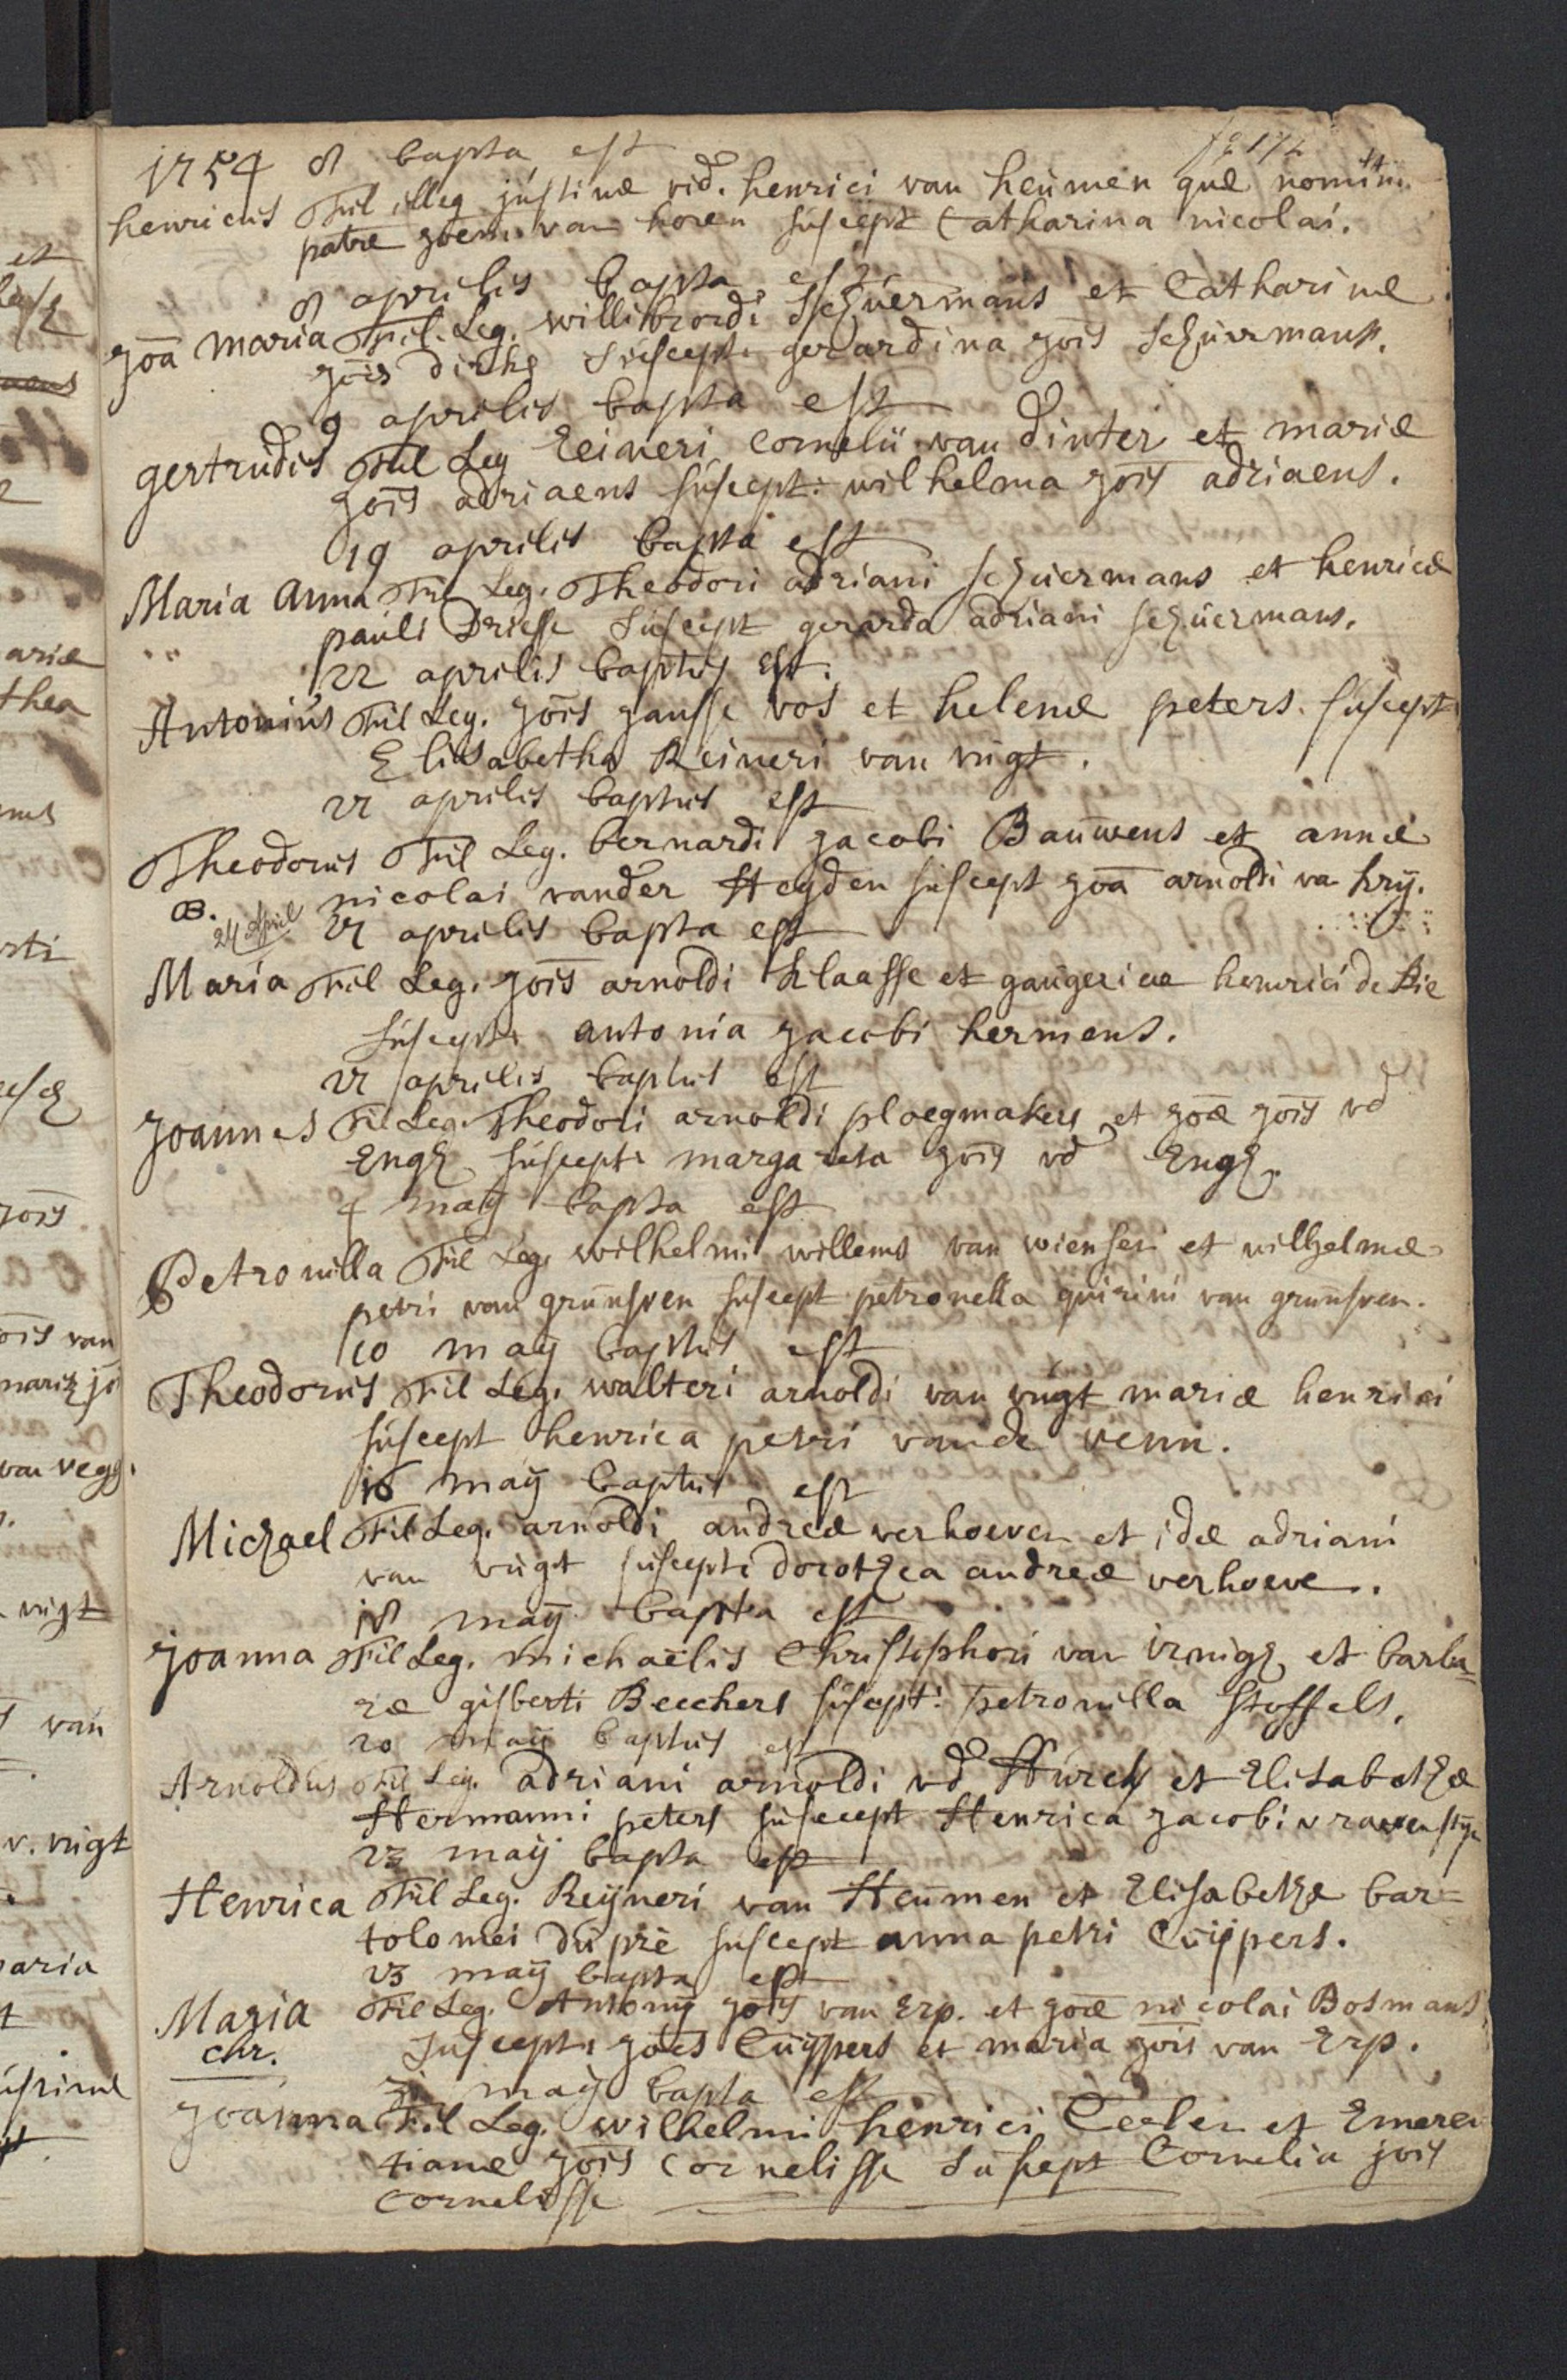 1754 8 bapta est
henricus Fil illeg justinæ vid. henrici van heumen quæ nomin.
patre joem van horen suscept Catharina nicolai.
8 aprilis bapta est
joā Maria Fil. Leg. willibrordi schuermans et Catharinæ
jois dirks suscept. gerardina jois schuermans.
9 aprilis bapta est
gertrudis Fil Leg Reineri Cornelii van dinter et mariæ
jois adriaens suscept: wilhelma jois adriaens.
19 aprilis bapta est
Maria Anna Fil Leg. Theodori adriani schuermans et henricæ
pauli Driesse suscept gerarda adriani schuermans.
22 aprilis baptus est.
Antonius Fil Leg. jois jansse vos et helenæ peters. suscept
Elisabetha Reineri van vugt.
aprilis baptus est
Theodorus Fil Leg. bernardi jacobi Bauwens et annæ
nicolai vander Heyden suscept joā arnoldi va krij.
B. 24 April
aprilis bapta est
Maria Fil Leg. jois arnoldi klaasse et henrici de Bie
suscept. antonia jacobi hermens.
aprilis baptus est
Joannes Fil Leg. Theodori arnoldi ploegmakers et joæ jois vd
Engh suscept. margareta jois vd Engh.
4 maij bapta est
Petronilla Fil Leg. wilhelmi willems van et wilhelmæ
petri van grunsven suscept petronella quirini van grunsven.
10 maij baptus est
Theodorus Fil Leg. walteri arnoldi van vugt mariæ henrici
suscept henrica petri vande venn.
16 maij baptus est
Michael Fil Leg. arnoldi andreæ verhoeven et idæ adriani
van vugt suscept. dorothea andreæ verhoeve.
18 maij bapta est
joanna Fil Leg. michaëlis Christophori van et barba=
ræ gisberti Beeckers suscept: petronilla stoffels.
20 maij baptus est
Arnoldus Fil Leg. adriani arnoldi vd Hurck et Elisabethæ
Hermanni peters suscept Henrica jacobi v ravenstijn
23 maij bapta est
Henrica Fil Leg. Reijneri van Heumen et Elisabethæ bar=
tolomei dupré suscept anna petri Cuijpers.
23 maij bapta est
Maria Fil Leg. Antonij jois van Erp. et joæ nicolai Bosmans,
chr. suscept. joēs Cuijpers et maria jois van Erp.
maij bapta est
joanna Fil Leg. wilhelmi henrici et Emeren
tianæ jois cornelisse suscept Cornelia jois
cornelisse